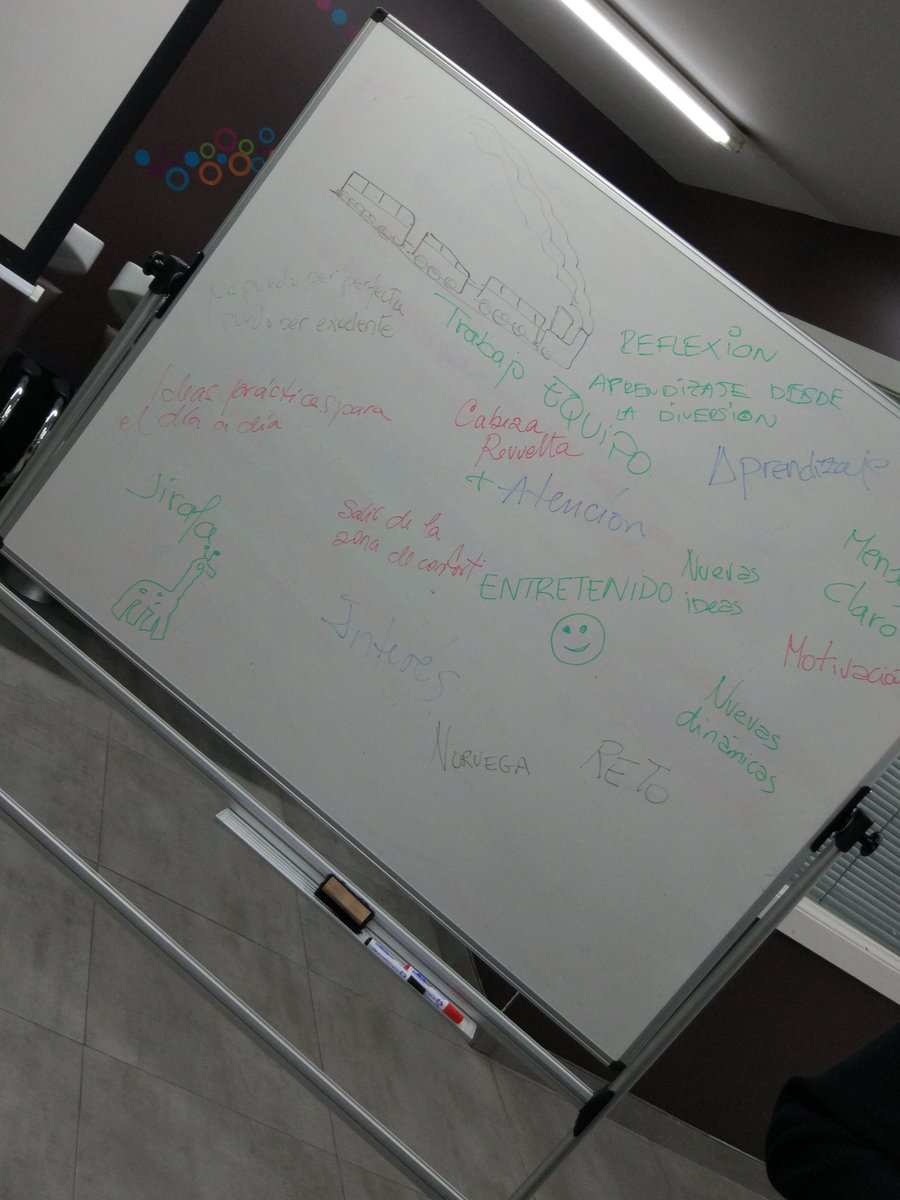 No puedo ser perfecta
puedo ser excelente
Trabajo
EQUIPO
REFLEXIÓN
APRENDIZAJE DESDE
LA DIVERSIÓN
Ideas prácticas para
el día a día
Cabeza
Revuelta
+ Atención
Aprendizaje
Jirafa
Salir de la
zona de confort
ENTRETENIDO
Nuevas
ideas
Claro
Motivación
Interés
Nuevas
dinámicas
NORUEGA
RETO